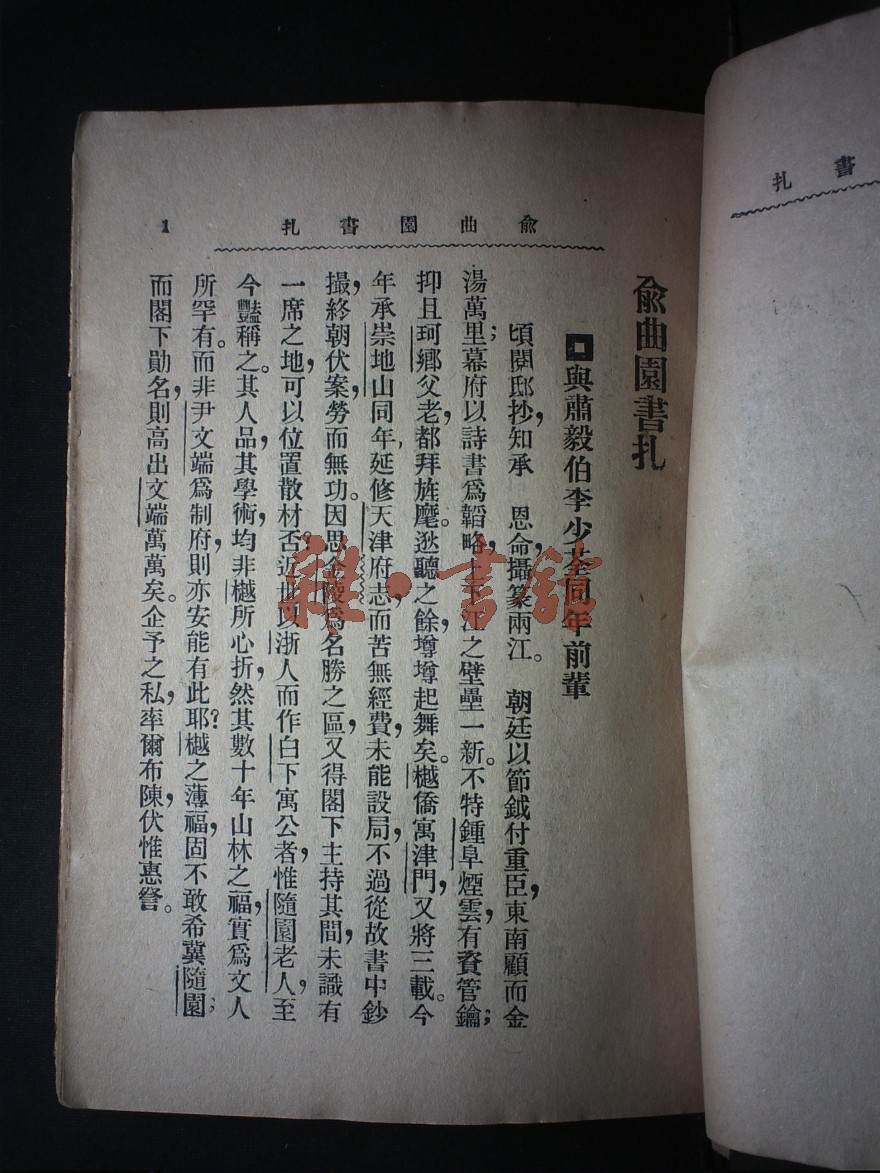 俞曲園書札
1
俞曲園書札
與肅毅伯李少荃同年前輩
頃閱邸抄，知承　恩命，攝篆兩江。　朝廷以節鉞付重臣，東南顧而金
湯萬里；幕府以詩書爲韜略，上下江之壁壘一新。不特鍾阜煙雲，有資管鑰；
抑且珂鄉父老，都拜旌麾。逖聽之餘，壿壿起舞矣。樾僑寓津門，又將三載。今
年承崇地山同年，延修天津府志，而苦無經費，未能設局，不過從故書中鈔
撮，終朝伏案，勞而無功。因思金陵爲名勝之區，又得閣下主持其間，未識有
一席之地，可以位置散材否？近世以浙人而作白下寓公者，惟隨園老人，至
今豔稱之。其人品，其學術，均非樾所心折，然其數十年山林之福，實爲文人
所罕有。而非尹文端爲制府，則亦安能有此耶？樾之薄福，固不敢希冀隨園；
而閣下勛名，則高出文端萬萬矣。企予之私，率爾布陳，伏惟惠詧。
書札
雜·書館